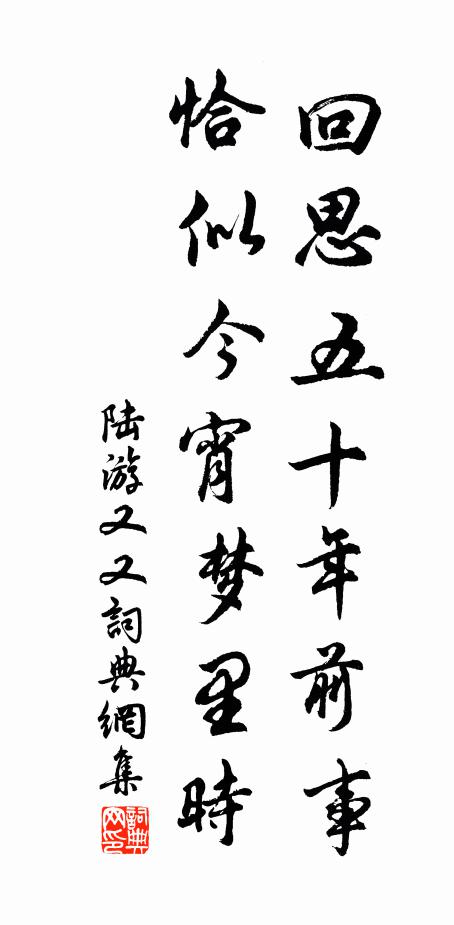 回思五十年前事
恰似今宵梦里時
陆游又又詞典網集
詞典网印